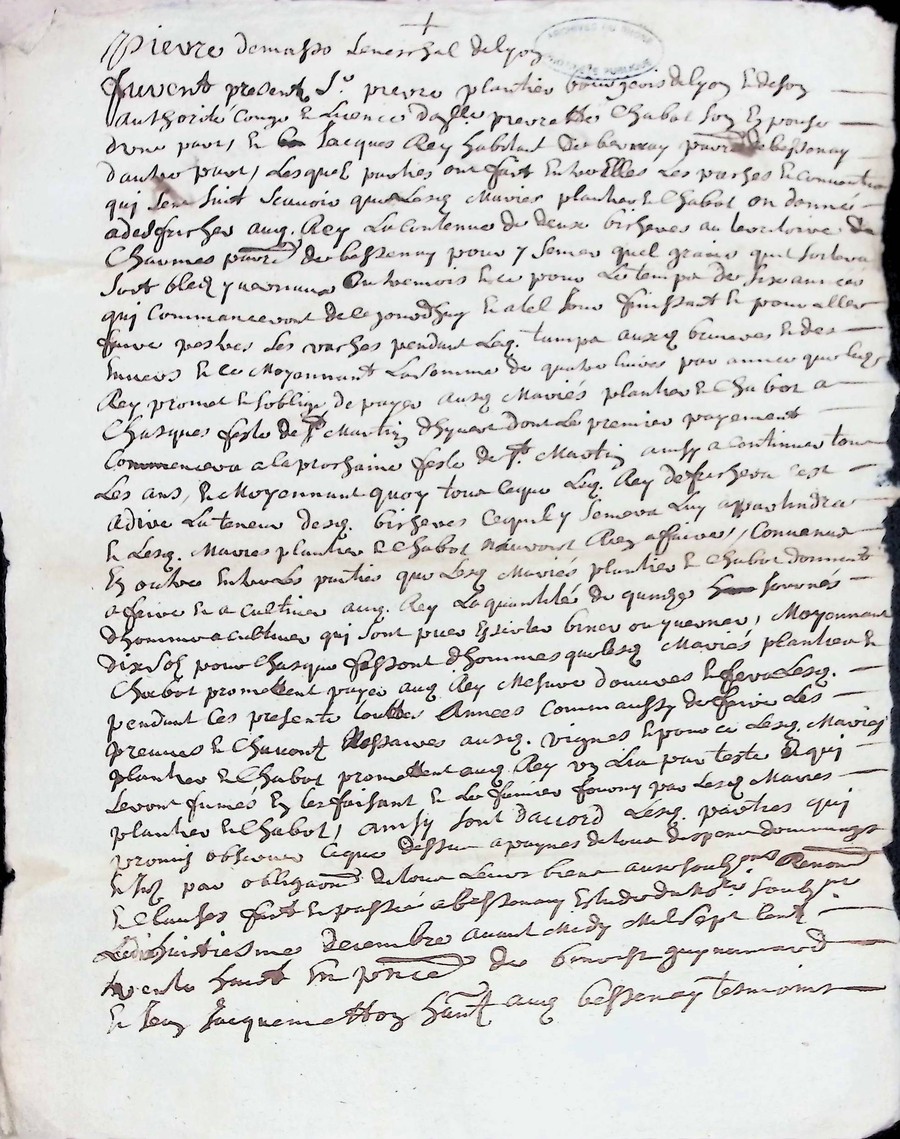 Pierre demasso seneschal de lyon
ARCHIVES DU RHONE
Furent presents Sr. pierre plantier bourgeois de lyon & de son
authorité Congé & Licence dlle pierrette Chabot son Espouse
dune part, & Jacques Rey habitant de paroisse de bessenay
dautre part, Lesquels parties ont fait Entrelles Les paches & convention
qui sens suit scavoir que Lesq. Mariés plantier & Chabot on donné
a desfricher auq. Rey La contenue de deux bicherés au territoire de
Charmes parroisse de bessenay pour y semer quel grains quil sortera
soit bled, & ce pour Le temps de six années
qui Commanceront de ce jourdhuy & a tel jour finissant & pour aller
faire pestres Les vaches pendant Led. temps auxq. bruieres & des
& ce Moyennant La somme de quatre livres par année que Ledq.
Rey promet & soblige de payer ausq. Mariés plantier & Chabot a
Chasques feste de St. Martin dhyvert dont Le premier payement
Commencera a la prochaine feste de St. Martin ainsy a continuer tous
Les ans, & Moyennant quoy tout ce que Leq. Rey desfrichera cest
a dire La teneur desq. bicherés ce quil y semera Luy appartiendra
& Lesq. Mariés plantier & Chabot nauront Rien affaire, Convenus
En outre Entre Les parties que Lesq. Mariés plantier & Chabot donnent
a faire & a cultiver auq. Rey La quantité de quinze journés
dhomme a cultiver qui sont biner, Moyennant
dix sols pour Chasque fessont dhommes que lesq. Mariés plantier &
Chabot promettent payer auq. Rey Mesure & fera Lesq.
pendant Ces presente touttes Années Comm aussy de faire Les
preuves & Nessaires ausq. vignes & pour ce Lesq. Mariés
plantier & Chabot promettent auq. Rey un par teste & qui
seront fumés En les faisant & Le fumier fourny par Lesq. Mariés
plantier & Chabot, ainsy sont d'accord Lesq. parties qui
promis observer ce que dessus a paynes de tous despens dommage
& par obligaon de tous Leurs biens aux soubmis Renon
& Clauses fait & passé a bessenay Estude du notre. soubzne
Le dishuitiesme decembre avant Midy Mil Sept Cent
trente huit En pnce de benoist guynamard
& Jean Jacquemetton hant auq. bessenay tesmoins